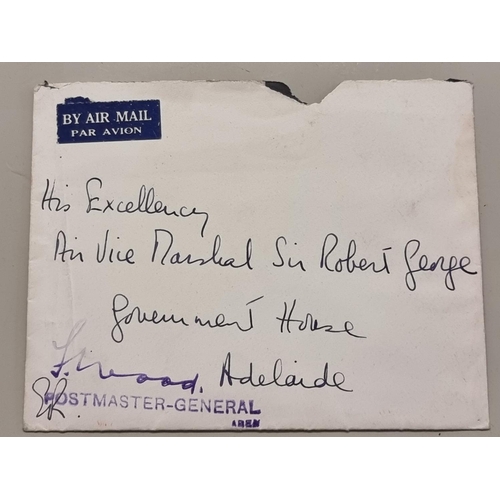 BY AIR MAIL
PAR AVION
His Excellency
Air Vice Marshal Sir Robert George
Government House
Adelaide
POSTMASTER-GENERAL
ADEN